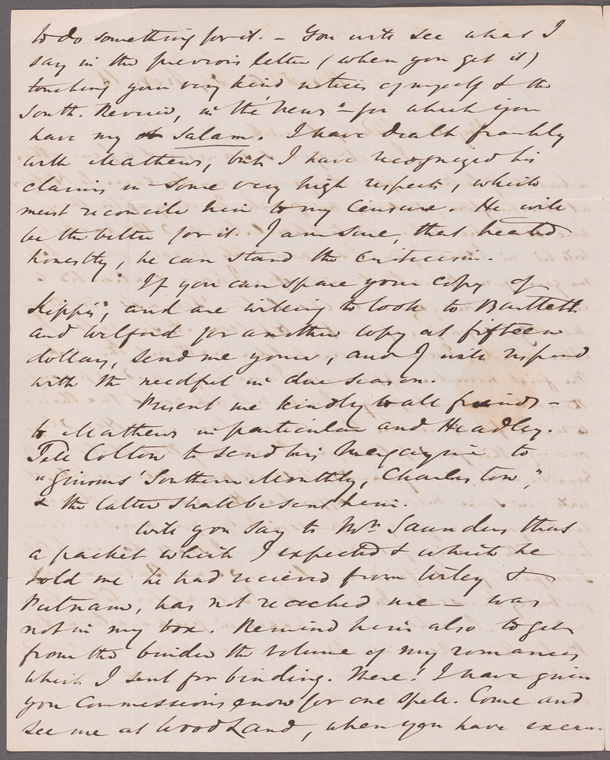 to do something for it. – You will see what I
say in the previous letter (when you get it)
touching your very kind notices of myself & the
South. Review, in the "News" – for which you
have my Salam. I have dealt frankly
with Mathews, but I have recognized his
claims in some very high respects, which
must reconcile him to my censure. He will
be the better for it. I am sure, that treated
honestly, he can stand the criticism.
If you can spare your copy of
Kippis, and are willing to look to Bartlett
and Welford for another copy at fifteen
dollars, send me yours, and I will respond
with the needful in due season.
Present me kindly to all friends –
to Mathews in particular and Headley.
Tell Colton to send his Magazine to
"Simms' Southern Monthly, Charleston",
& the latter shall be sent him.
Will you say to Mr Saunders that
a packet which I expected & which he
told me he had recieved from Wiley &
Putnam, has not reached me – was
not in my box. Remind him also to get
from the binder the volume of my romances
which I sent for binding. There! I have given
you commissions enow for one spell. Come and
see me at WoodLand, when you have excur-